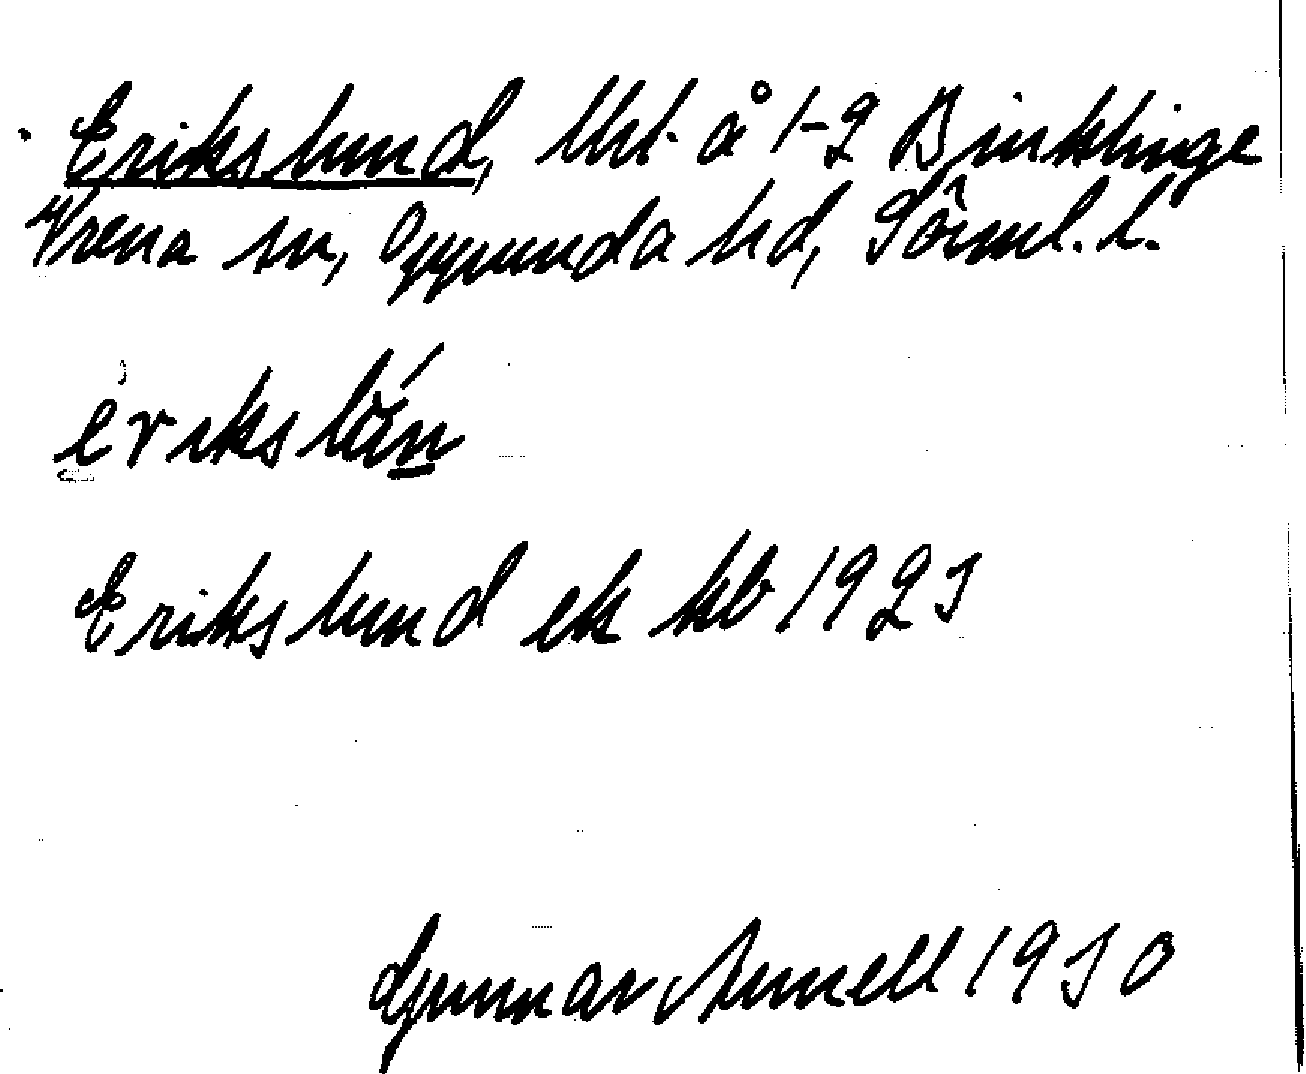 Erikslund, lht. å 1-2 Binklinge
Vrena sn, Oppunda hd, Söml. l.
erikslán
Erikslund ek kb 1925
Gunnar Arnell 1930